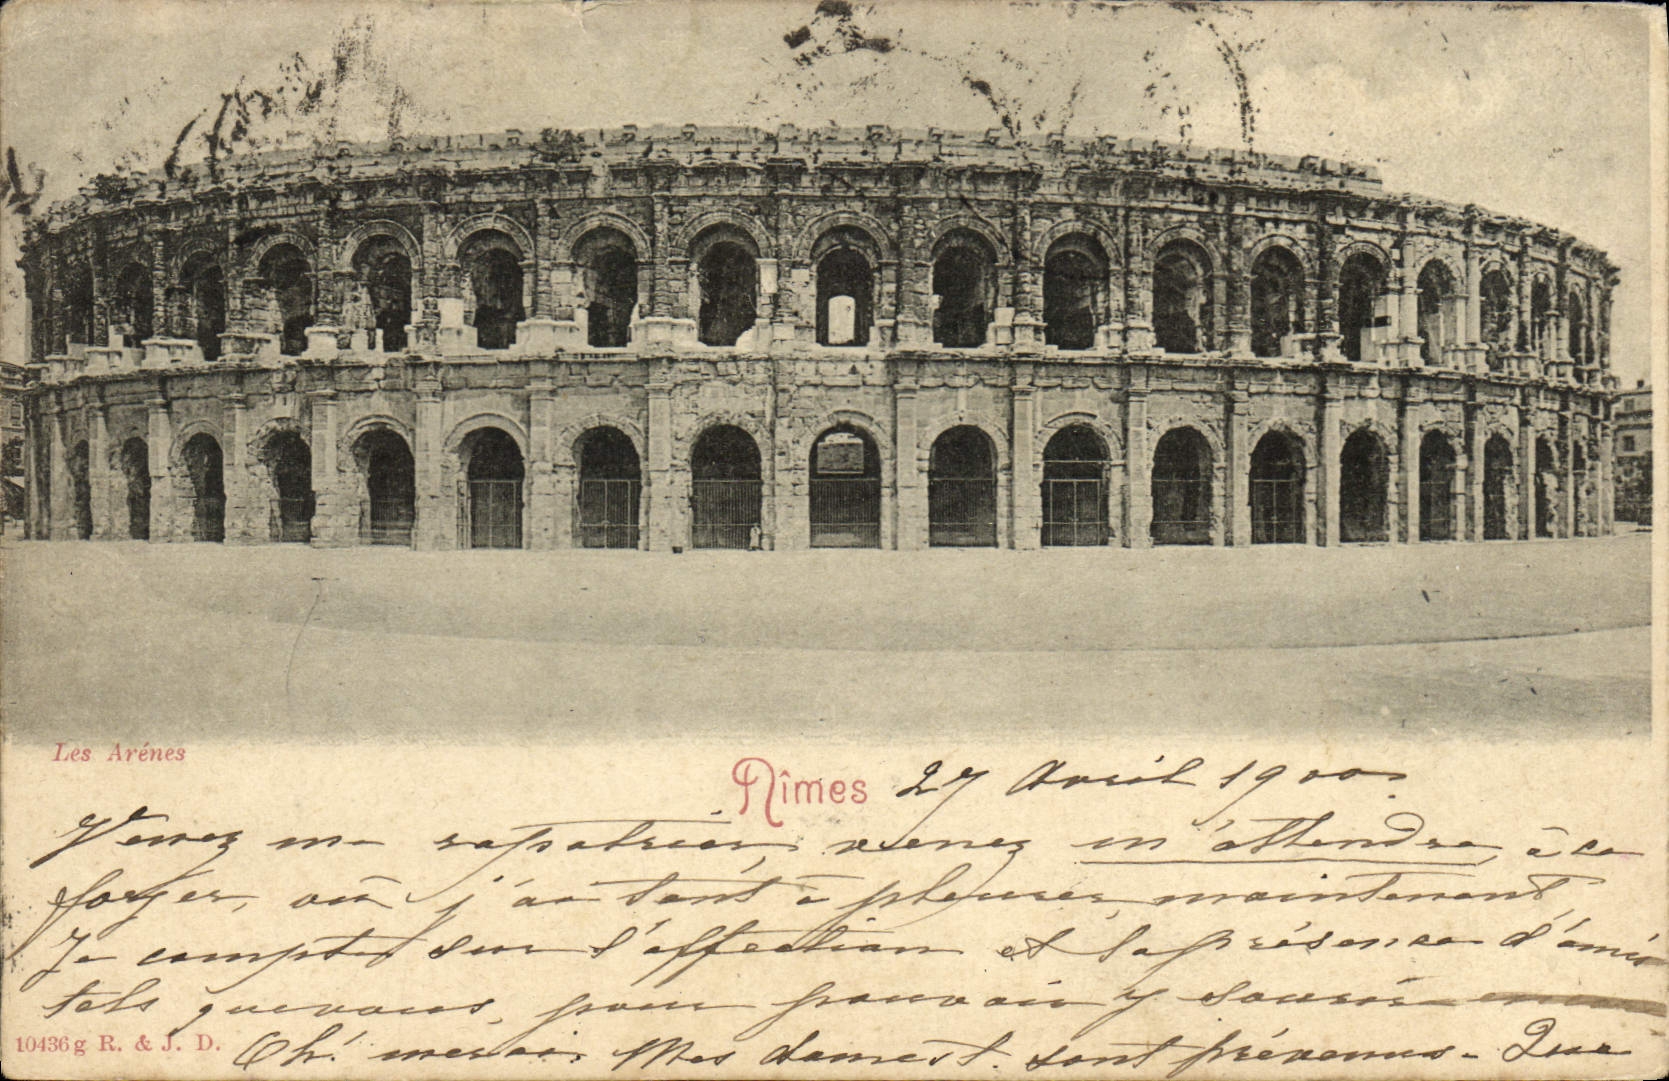 Les Arénes
Nîmes 27 Avril 1900.
Venez me rapatrier, venez m'attendre, à ce
foyer, où j'ai tant à pleurer, maintenant,
Je compte sur l'affection et la présence d'amis
tels que vous, pour pouvoir y sourir
10436 g R. & J. D. Oh! merci. Mes domest. sont prévenus. Que